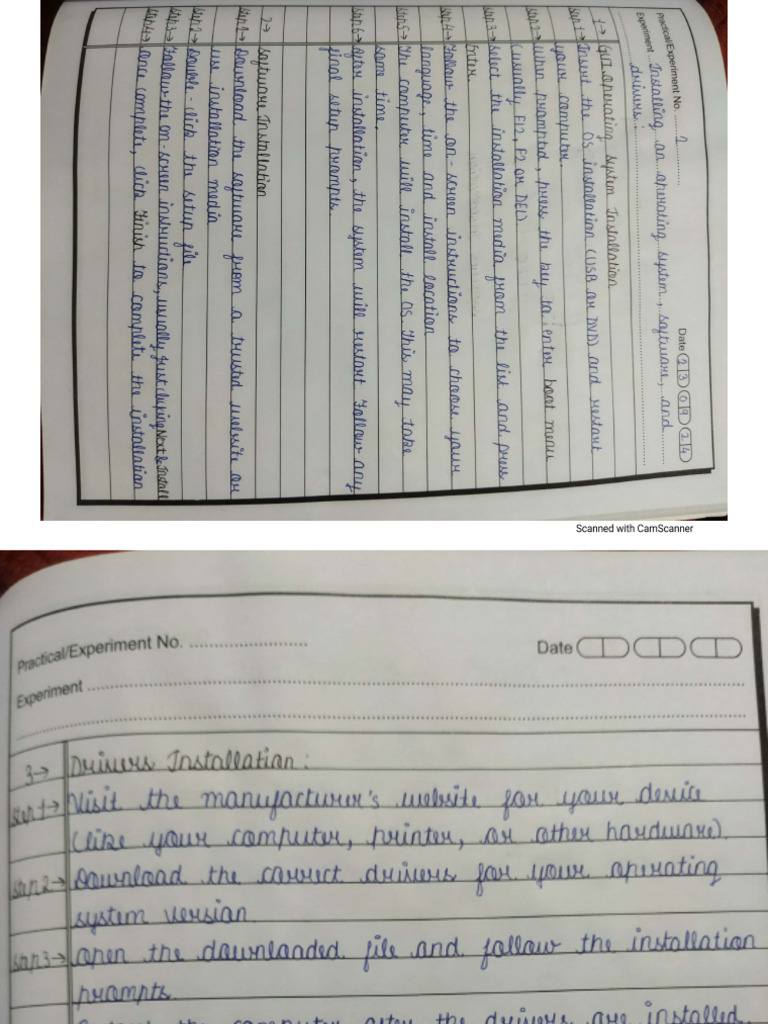 Practical/Experiment No. 2
Date 13 09 24
Experiment Installing an operating system, software, and
drivers:
1→ GUI operating system Installation
step 1→ Insert the OS installation (USB or DVD) and restart
your computer.
step 2→ When prompted, press the key to enter boot menu
(usually F12, F2 or DEL)
step 3→ select the installation media from the list and press
Enter.
step 4→ Follow the on-screen instructions to choose your
language, time and install location
step 5→ The computer will install the OS. This may take
some time.
step 6→ After installation, the system will restart Follow any
final setup prompts.
2→ software Installation
step 1→ Download the software from a trustd website or
use installation media
step 2→ Double-click the setup file
step 3→ Follow the on-screen instructions, usually just Next & Install
step 4→ once complete, click Finish to complete the installation
Scanned with CamScanner
Practical/Experiment No.
Date
Experiment
3→ Drivers Installation:
step 1→ Visit the manufacturer's website for your device
(like your computer, printer, or other hardware).
step 2→ Download the correct drivers for your operating
system version
step 3→ open the downloaded file and follow the installation
prompts.
the computer after the drivers are installed.